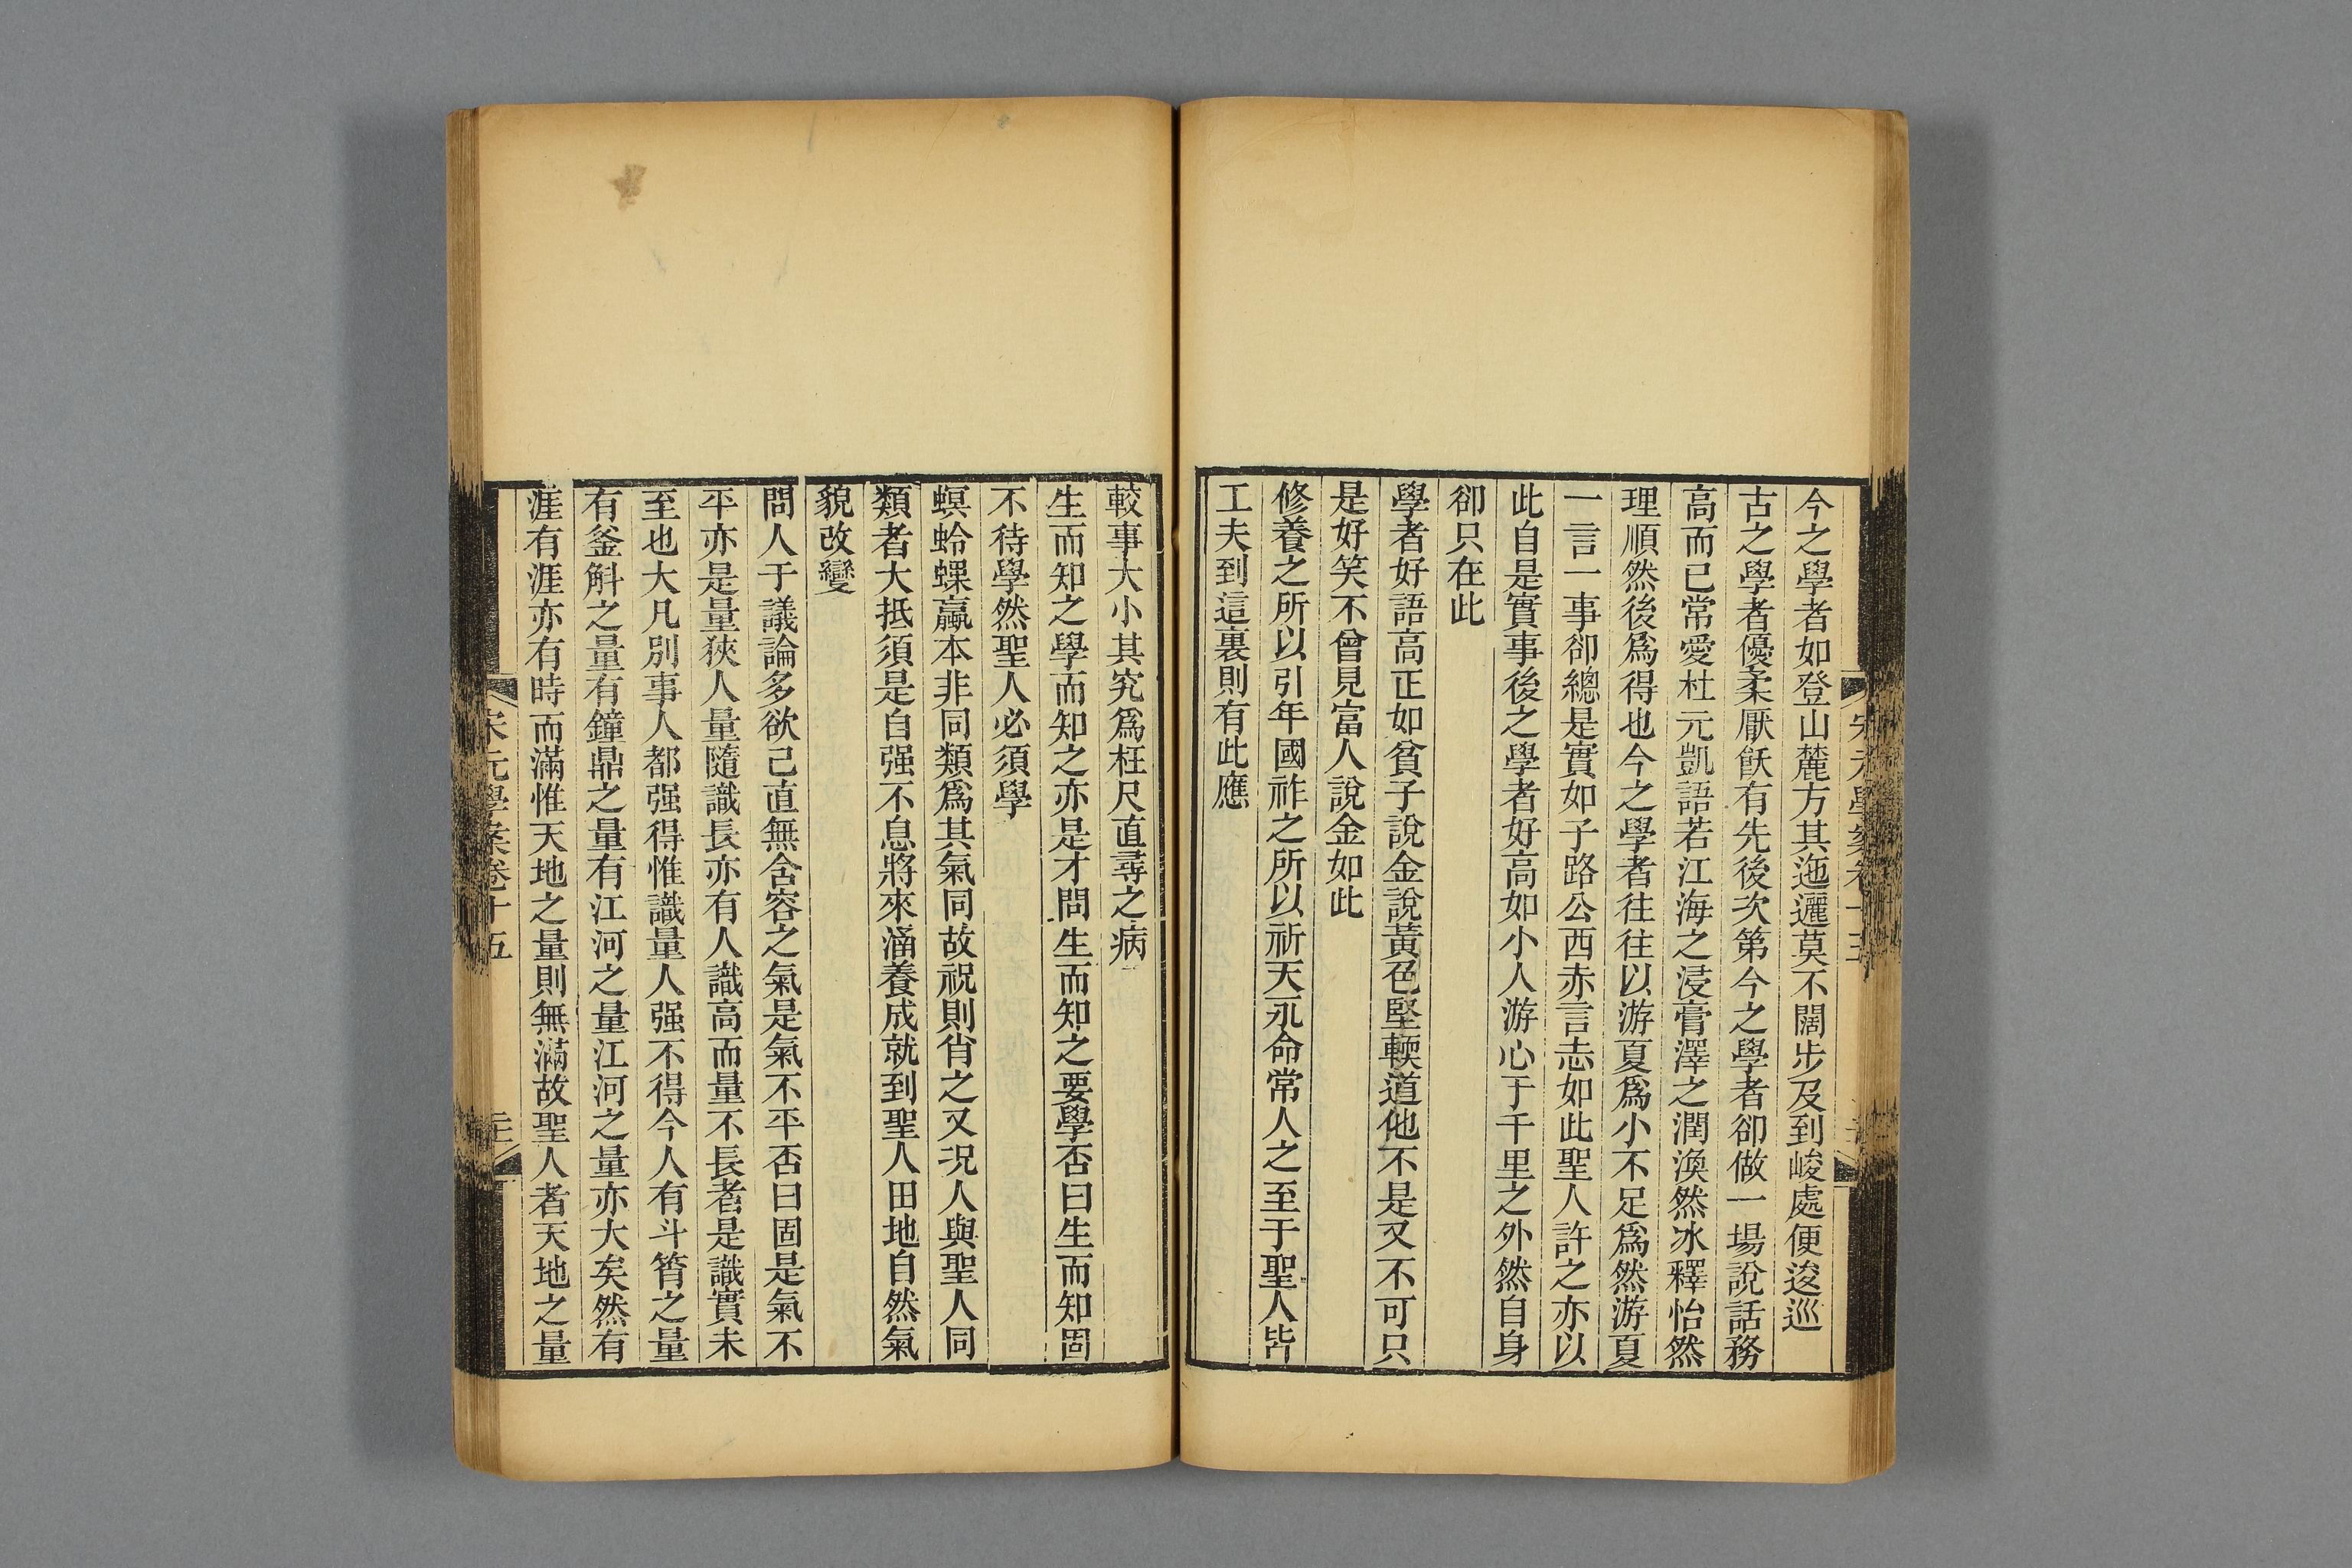 今之學者如登山麓方其迤邐莫不闊步及到峻處便逡巡
古之學者優柔厭飫有先後次第今之學者卻做一場說話務
高而已常愛杜元凱語若江海之浸膏澤之潤渙然冰釋怡然
理順然後爲得也今之學者往往以游夏爲小不足爲然游夏
一言一事卻總是實如子路公西赤言志如此聖人許之亦以
此自是實事後之學者好高如小人游心于千里之外然自身
卻只在此
學者好語高正如貧子說金說黃色堅輭道他不是又不可只
是好笑不曾見富人說金如此
修養之所以引年國祚之所以祈天永命常人之至于聖人皆
工夫到這裏則有此應
較事大小其究爲枉尺直尋之病
生而知之學而知之亦是才問生而知之要學否曰生而知固
不待學然聖人必須學
螟蛉蜾蠃本非同類爲其氣同故祝則肖之又況人與聖人同
類者大抵須是自强不息將來涵養成就到聖人田地自然氣
貌改變
問人于議論多欲己直無含容之氣是氣不平否曰固是氣不
平亦是量狹人量隨識長亦有人識高而量不長者是識實未
至也大凡別事人都强得惟識量人强不得今人有斗筲之量
有釜斛之量有鐘鼎之量有江河之量江河之量亦大矣然有
涯有涯亦有時而滿惟天地之量則無滿故聖人者天地之量
宋元學案卷十五